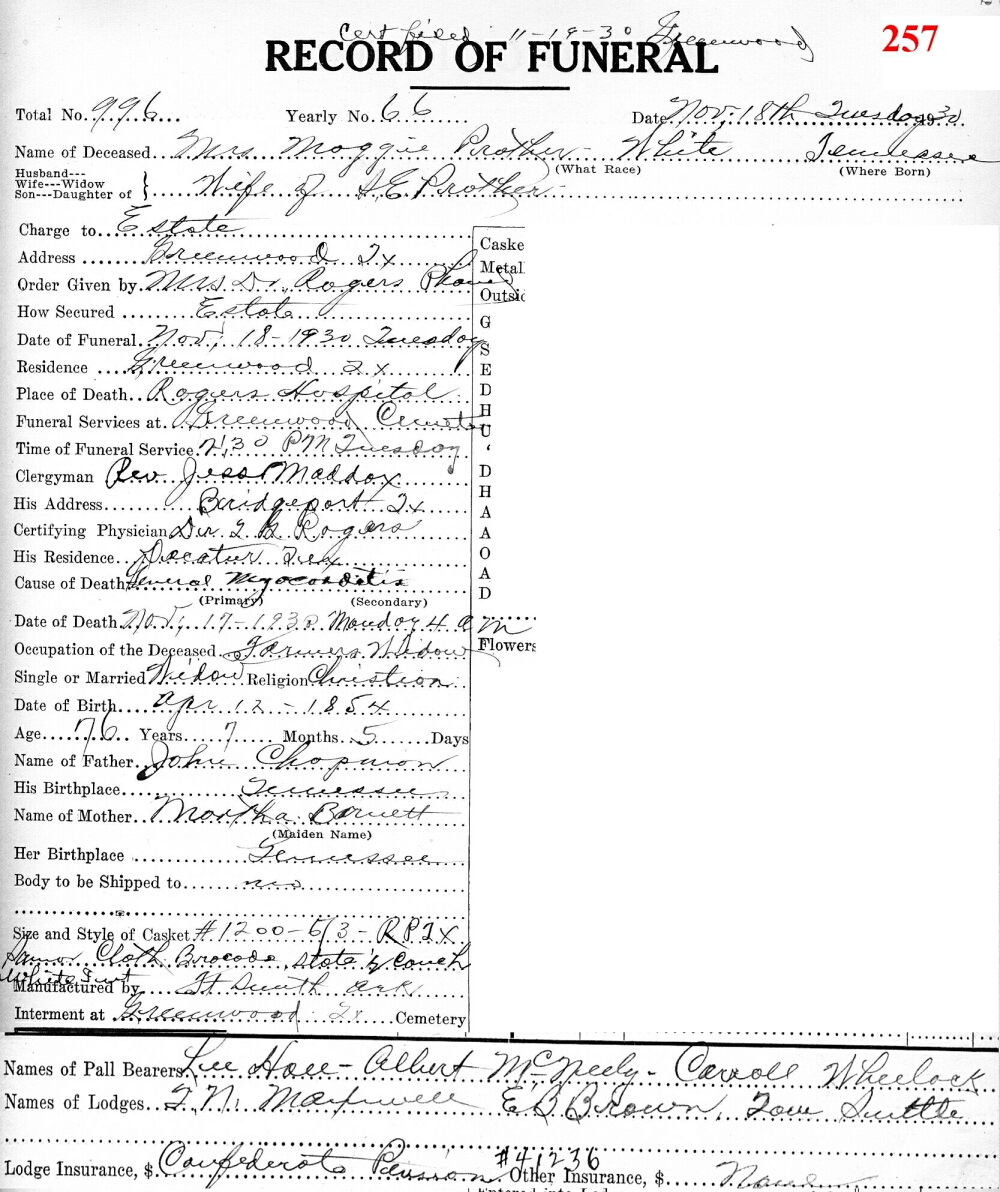 Cert filed 11-19-30 Greenwood
257
RECORD OF FUNERAL
Total No. 996 Yearly No. 66 Date Nov. 18th Tuesday 1930
Name of Deceased Mrs Maggie Prother - White Tennessee
(What Race) (Where Born)
Husband---
Wife---Widow
Son---Daughter of } Wife of Prother
Charge to Estate
Address Greenwood Tx
Order Given by Mrs Dr. Rogers Phone
How Secured Estate
Date of Funeral Nov. 18-1930 Tuesday
Residence Greenwood Tx
Place of Death Rogers Hospital
Funeral Services at Greenwood Cemetery
Time of Funeral Service 2:30 PM Tuesday
Clergyman Rev. Jess Maddox
His Address Bridgeport Tx
Certifying Physician Dr. Rogers
His Residence Decatur Tex
Cause of Death General Myocarditis
(Primary) (Secondary)
Date of Death Nov. 17-1930 Monday 4 am
Occupation of the Deceased Farmers Widow
Single or Married Widow Religion Christian
Date of Birth Apr 12-1854
Age 76 Years 7 Months 5 Days
Name of Father John Chapman
His Birthplace Tennessee
Name of Mother Martha Barnett
(Maiden Name)
Her Birthplace Tennessee
Body to be Shipped to no
Size and Style of Casket #1200-6/3-
Cloth Brocade, state & couch
White Int
Manufactured by Ft Smith Ark
Interment at Greenwood Tx Cemetery
Caske
Metal
Outsid
G
S
E
D
H
U
‘
D
H
A
A
O
A
D
Flowers
Names of Pall Bearers Lee Hall - Albert McNeely - Carroll Wheelock
Names of Lodges T.N. Maxwell E B Brown, Tom Suttle
Lodge Insurance, $ Confederate Pension #41236 Other Insurance, $ None